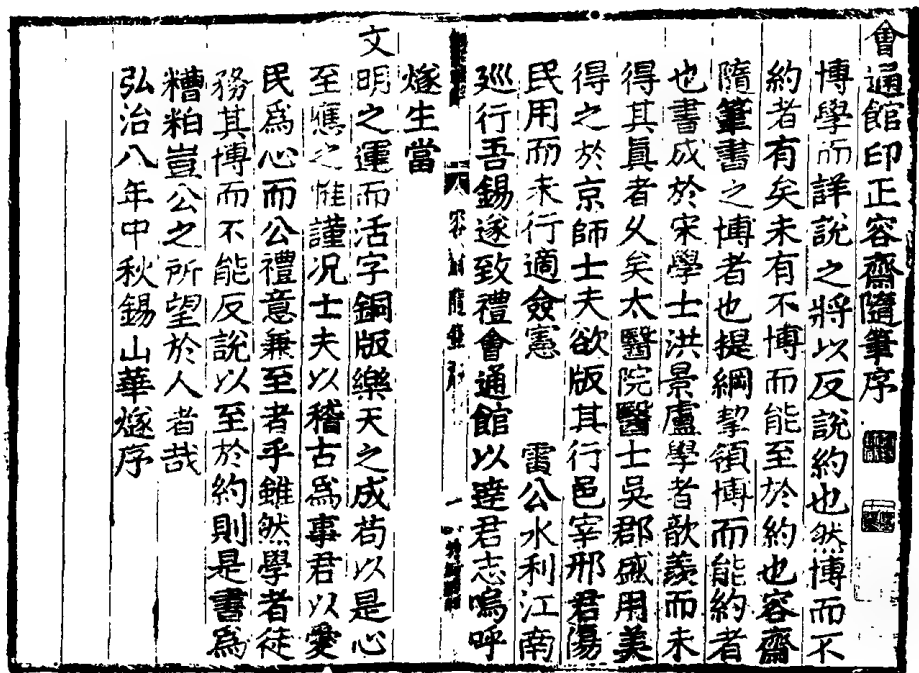 會通館印正容齋隨筆序
博學而詳說之將以反說約也然博而不
約者有矣未有不博而能至於約也容齋
隨筆書之博者也提綱挈領博而能約者
也書成於宋學士洪景盧學者歆羨而未
得其真者久矣太醫院醫士吳郡盛用美
得之於京師士夫欲版其行邑宰邢君傷
民用而未行適僉憲 雷公水利江南
廵行吾錫遂致禮會通館以達君志嗚呼
燧生當
文明之運而活字銅版樂天之成苟以是心
至應之惟謹況士夫以稽古爲事君以愛
民爲心而公禮意兼至者乎雖然學者徒
務其博而不能反說以至於約則是書爲
糟粕豈公之所望於人者哉
弘治八年中秋錫山華燧序